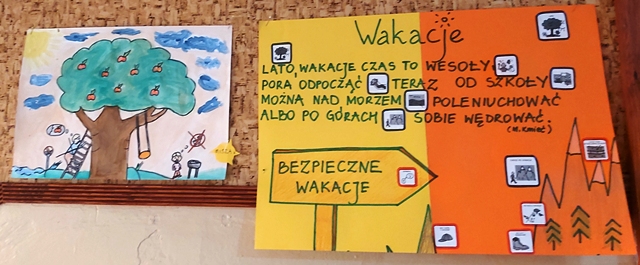 Wakacje
LATO, WAKACJE CZAS TO WESOŁY
PORA ODPOCZĄĆ TERAZ OD SZKOŁY
MOŻNA NAD MORZEM POLENIUCHOWAĆ
ALBO PO GÓRACH SOBIE WĘDROWAĆ.
(M. Kmieć)
BEZPIECZNE
WAKACJE